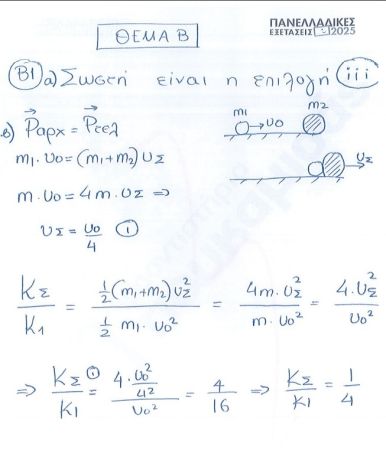 ΠΑΝΕΛΛΑΔΙΚΕΣ
ΕΞΕΤΑΣΕΙΣ 2025
ΘΕΜΑ Β
Β1 α) Σωστή είναι η επιλογή iii
β) Pαρχ = Pτελ
m1 υ0 m2
m1·υ0 = (m1+m2) υΣ
υΣ
m·υ0 = 4m·υΣ ⇒
υΣ = υ0/4 ①
KΣ/K1 = ½(m1+m2)υΣ²/½ m1·υ0² = 4m·υΣ²/m·υ0² = 4·υΣ²/υ0²
⇒ KΣ/K1 =① 4·υ0²/4²/υ0² = 4/16 ⇒ KΣ/K1 = 1/4